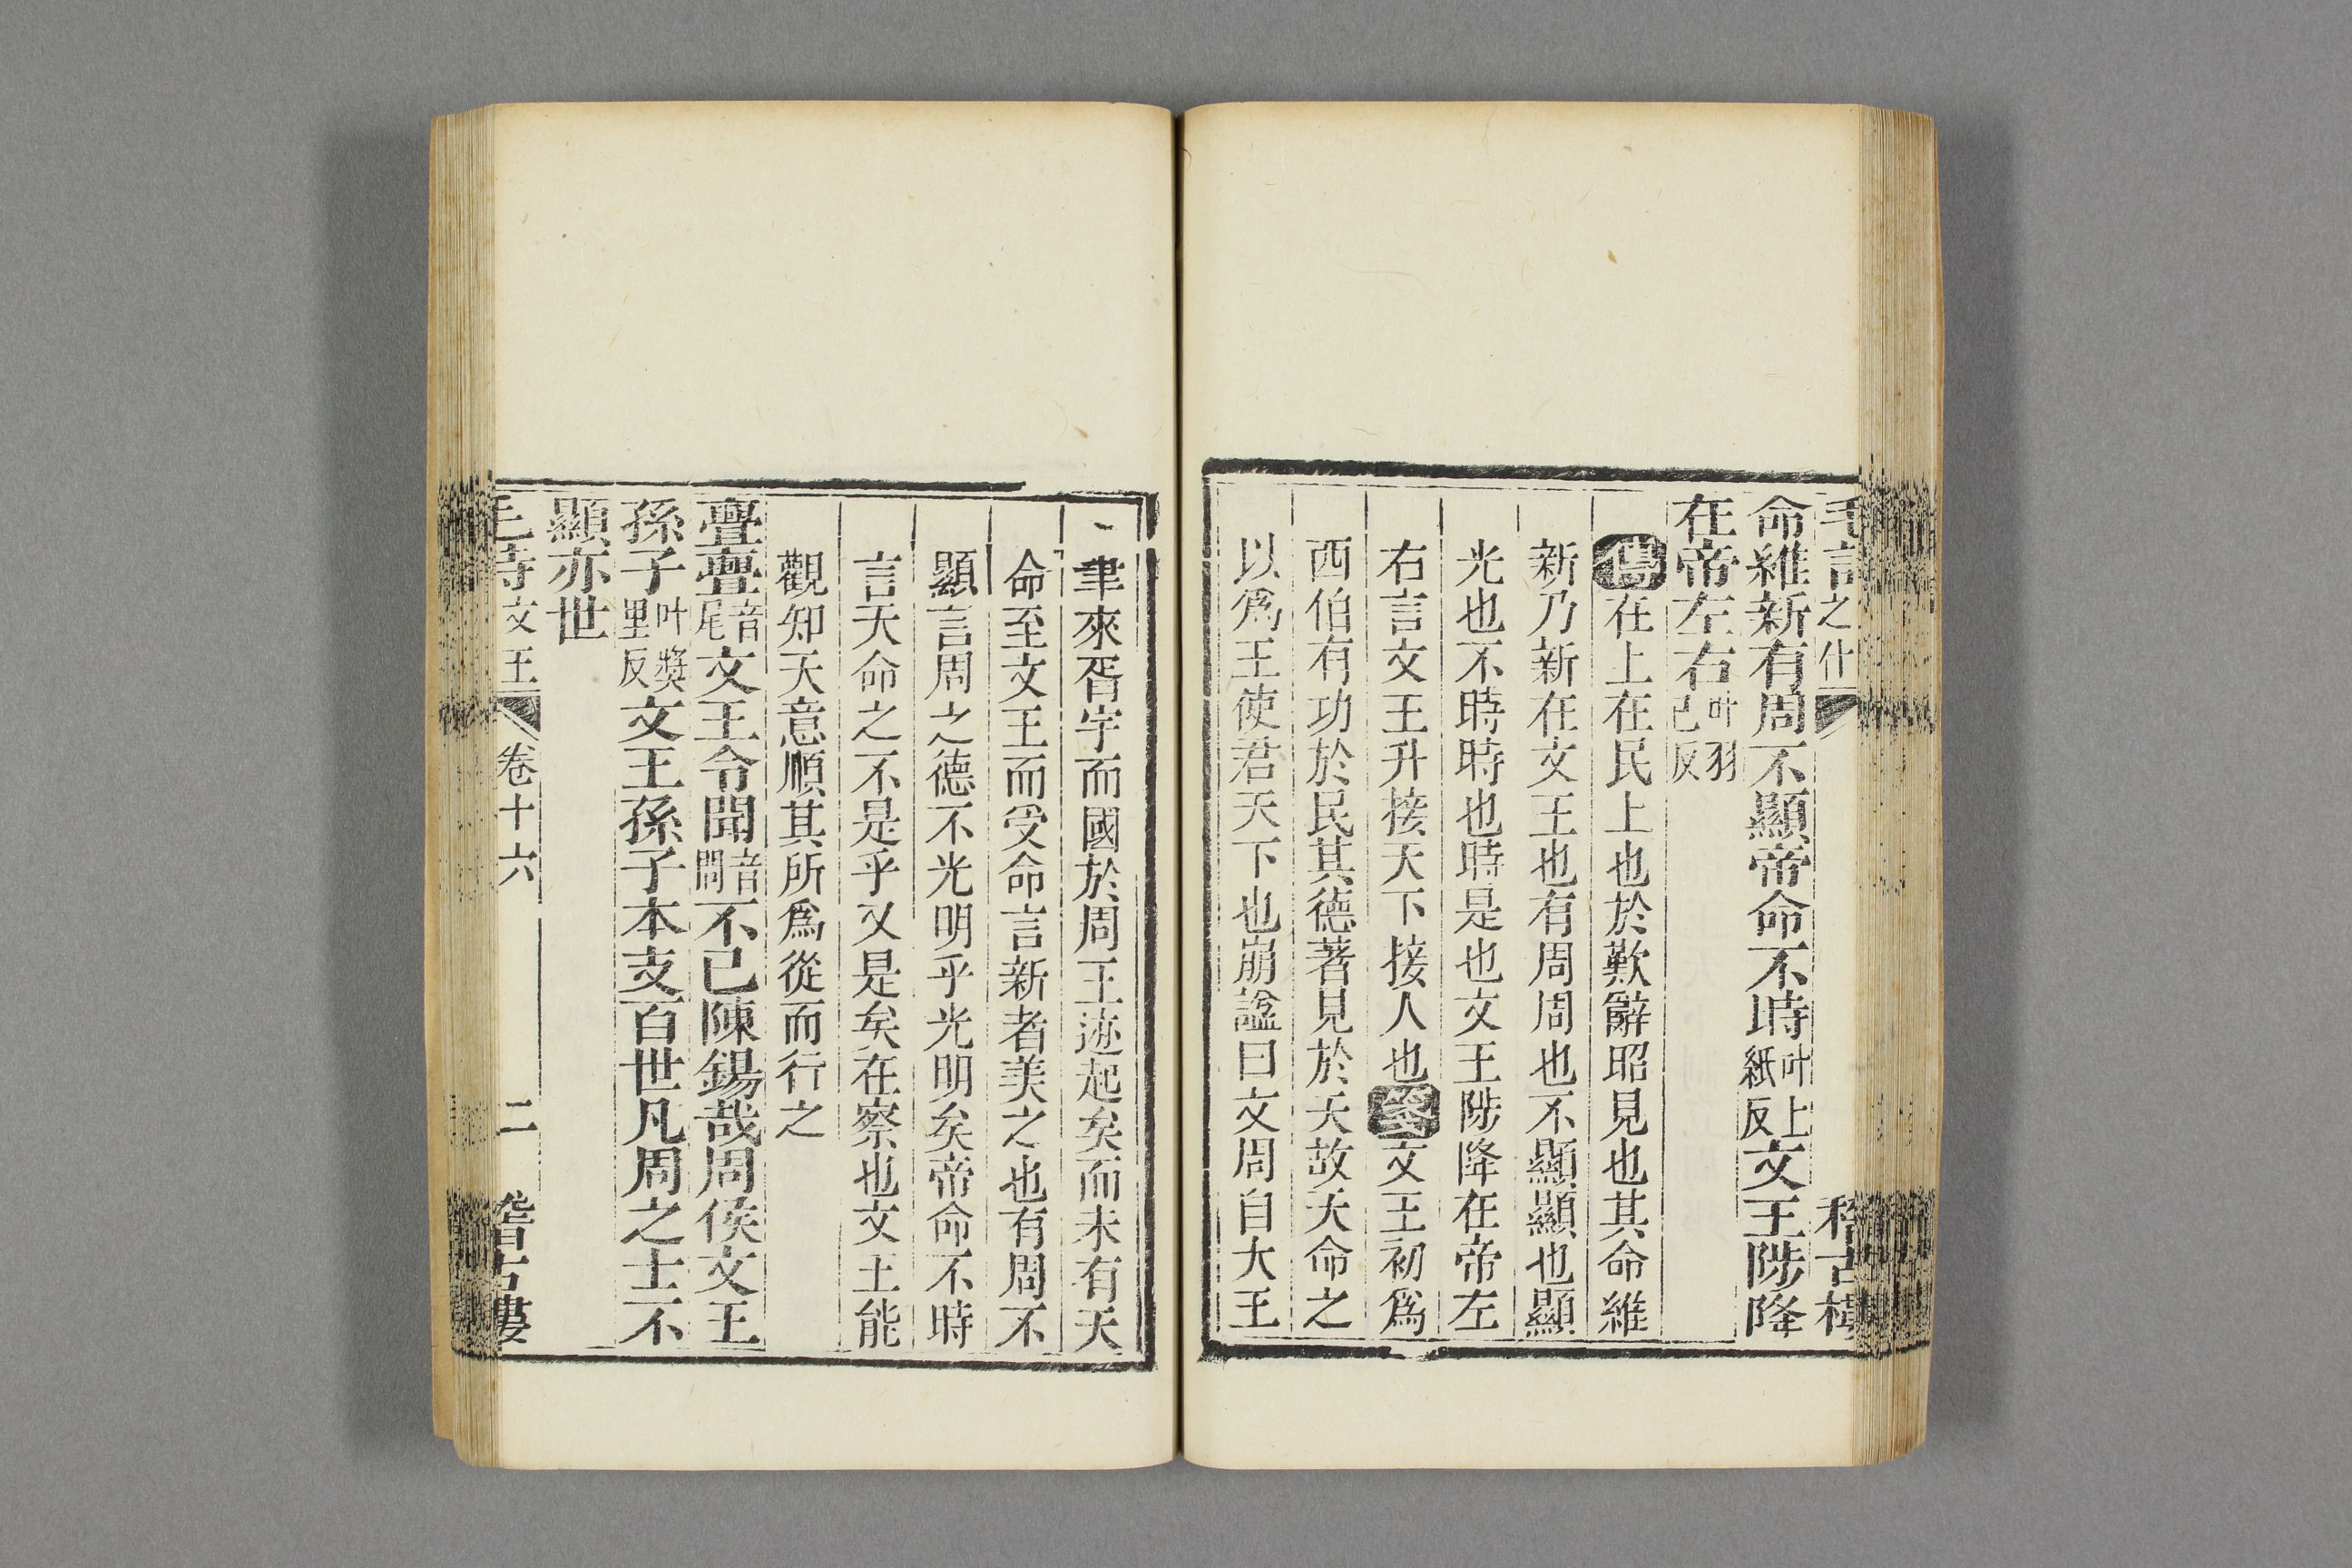 之什 稽古樓
命維新有周不顯帝命不時叶上紙反文王陟降
在帝左右叶羽已反
傳在上在民上也於歎辭昭見也其命維
新乃新在文王也有周周也不顯顯也顯
光也不時時也時是也文王陟降在帝左
右言文王升接天下接人也箋文王初爲
西伯有功於民其德著見於天故天命之
以爲王使君天下也崩諡曰文周自大王
聿來胥宇而國於周王迹起矣而未有天
命至文王而受命言新者美之也有周不
顯言周之德不光明乎光明矣帝命不時
言天命之不是乎又是矣在察也文王能
觀知天意順其所爲從而行之
亹亹音尾文王令聞音問不已陳錫哉周侯文王
孫子叶獎里反文王孫子本支百世凡周之士不
顯亦世
毛詩文王 卷十六 二 稽古樓